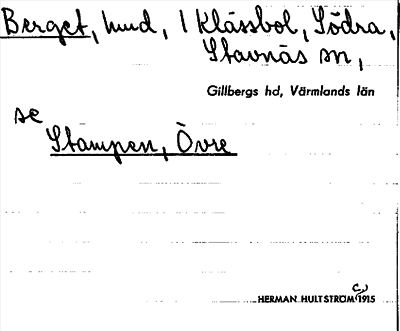 Berget, hmd, i Klässbol, Södra,
Stavnäs sn,
Gillbergs hd, Värmlands län
se
Stampen, Övre
HERMAN HULTSTRÖM 1915